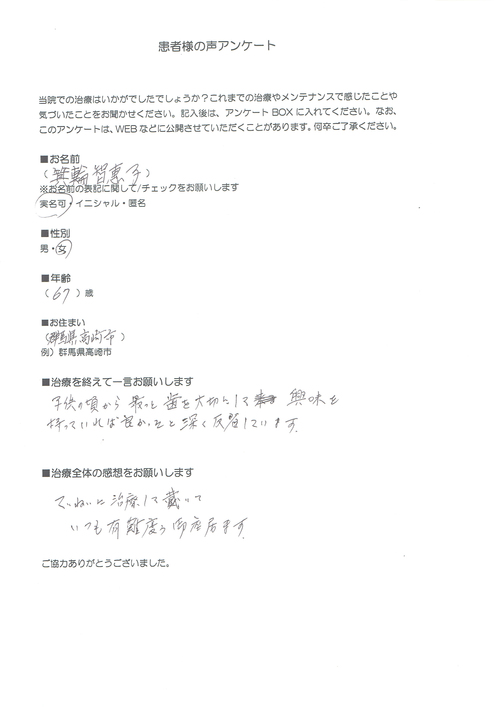 患者様の声アンケート
当院での治療はいかがでしたでしょうか？これまでの治療やメンテナンスで感じたことや
気づいたことをお聞かせください。記入後は、アンケート BOX に入れてください。なお、
このアンケートは、WEB などに公開させていただくことがあります。何卒ご了承ください。
■お名前
（箕輪智恵子）
※お名前の表記に関して/チェックをお願いします
実名可・イニシャル・匿名
■性別
男・女
■年齢
（67）歳
■お住まい
（群馬県高崎市）
例）群馬県高崎市
■治療を終えて一言お願いします
子供の頃から もっと 歯を大切にして 興味を
持っていれば良かったと深く反省しています
■治療全体の感想をお願いします
ていねいに治療して戴いて
いつも有難度う御座居ます
ご協力ありがとうございました。